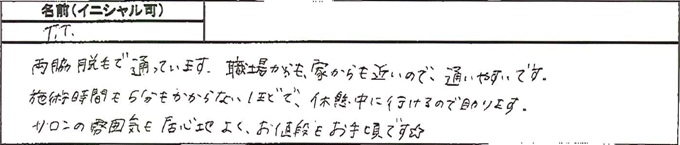 名前(イニシャル可)
T.T.
両脇脱毛で通っています。職場からも、家からも近いので、通いやすいです。
施術時間も5分もかからないほどで、休憩中に行けるので助かります。
サロンの雰囲気も居心地よく、お値段もお手頃です☆